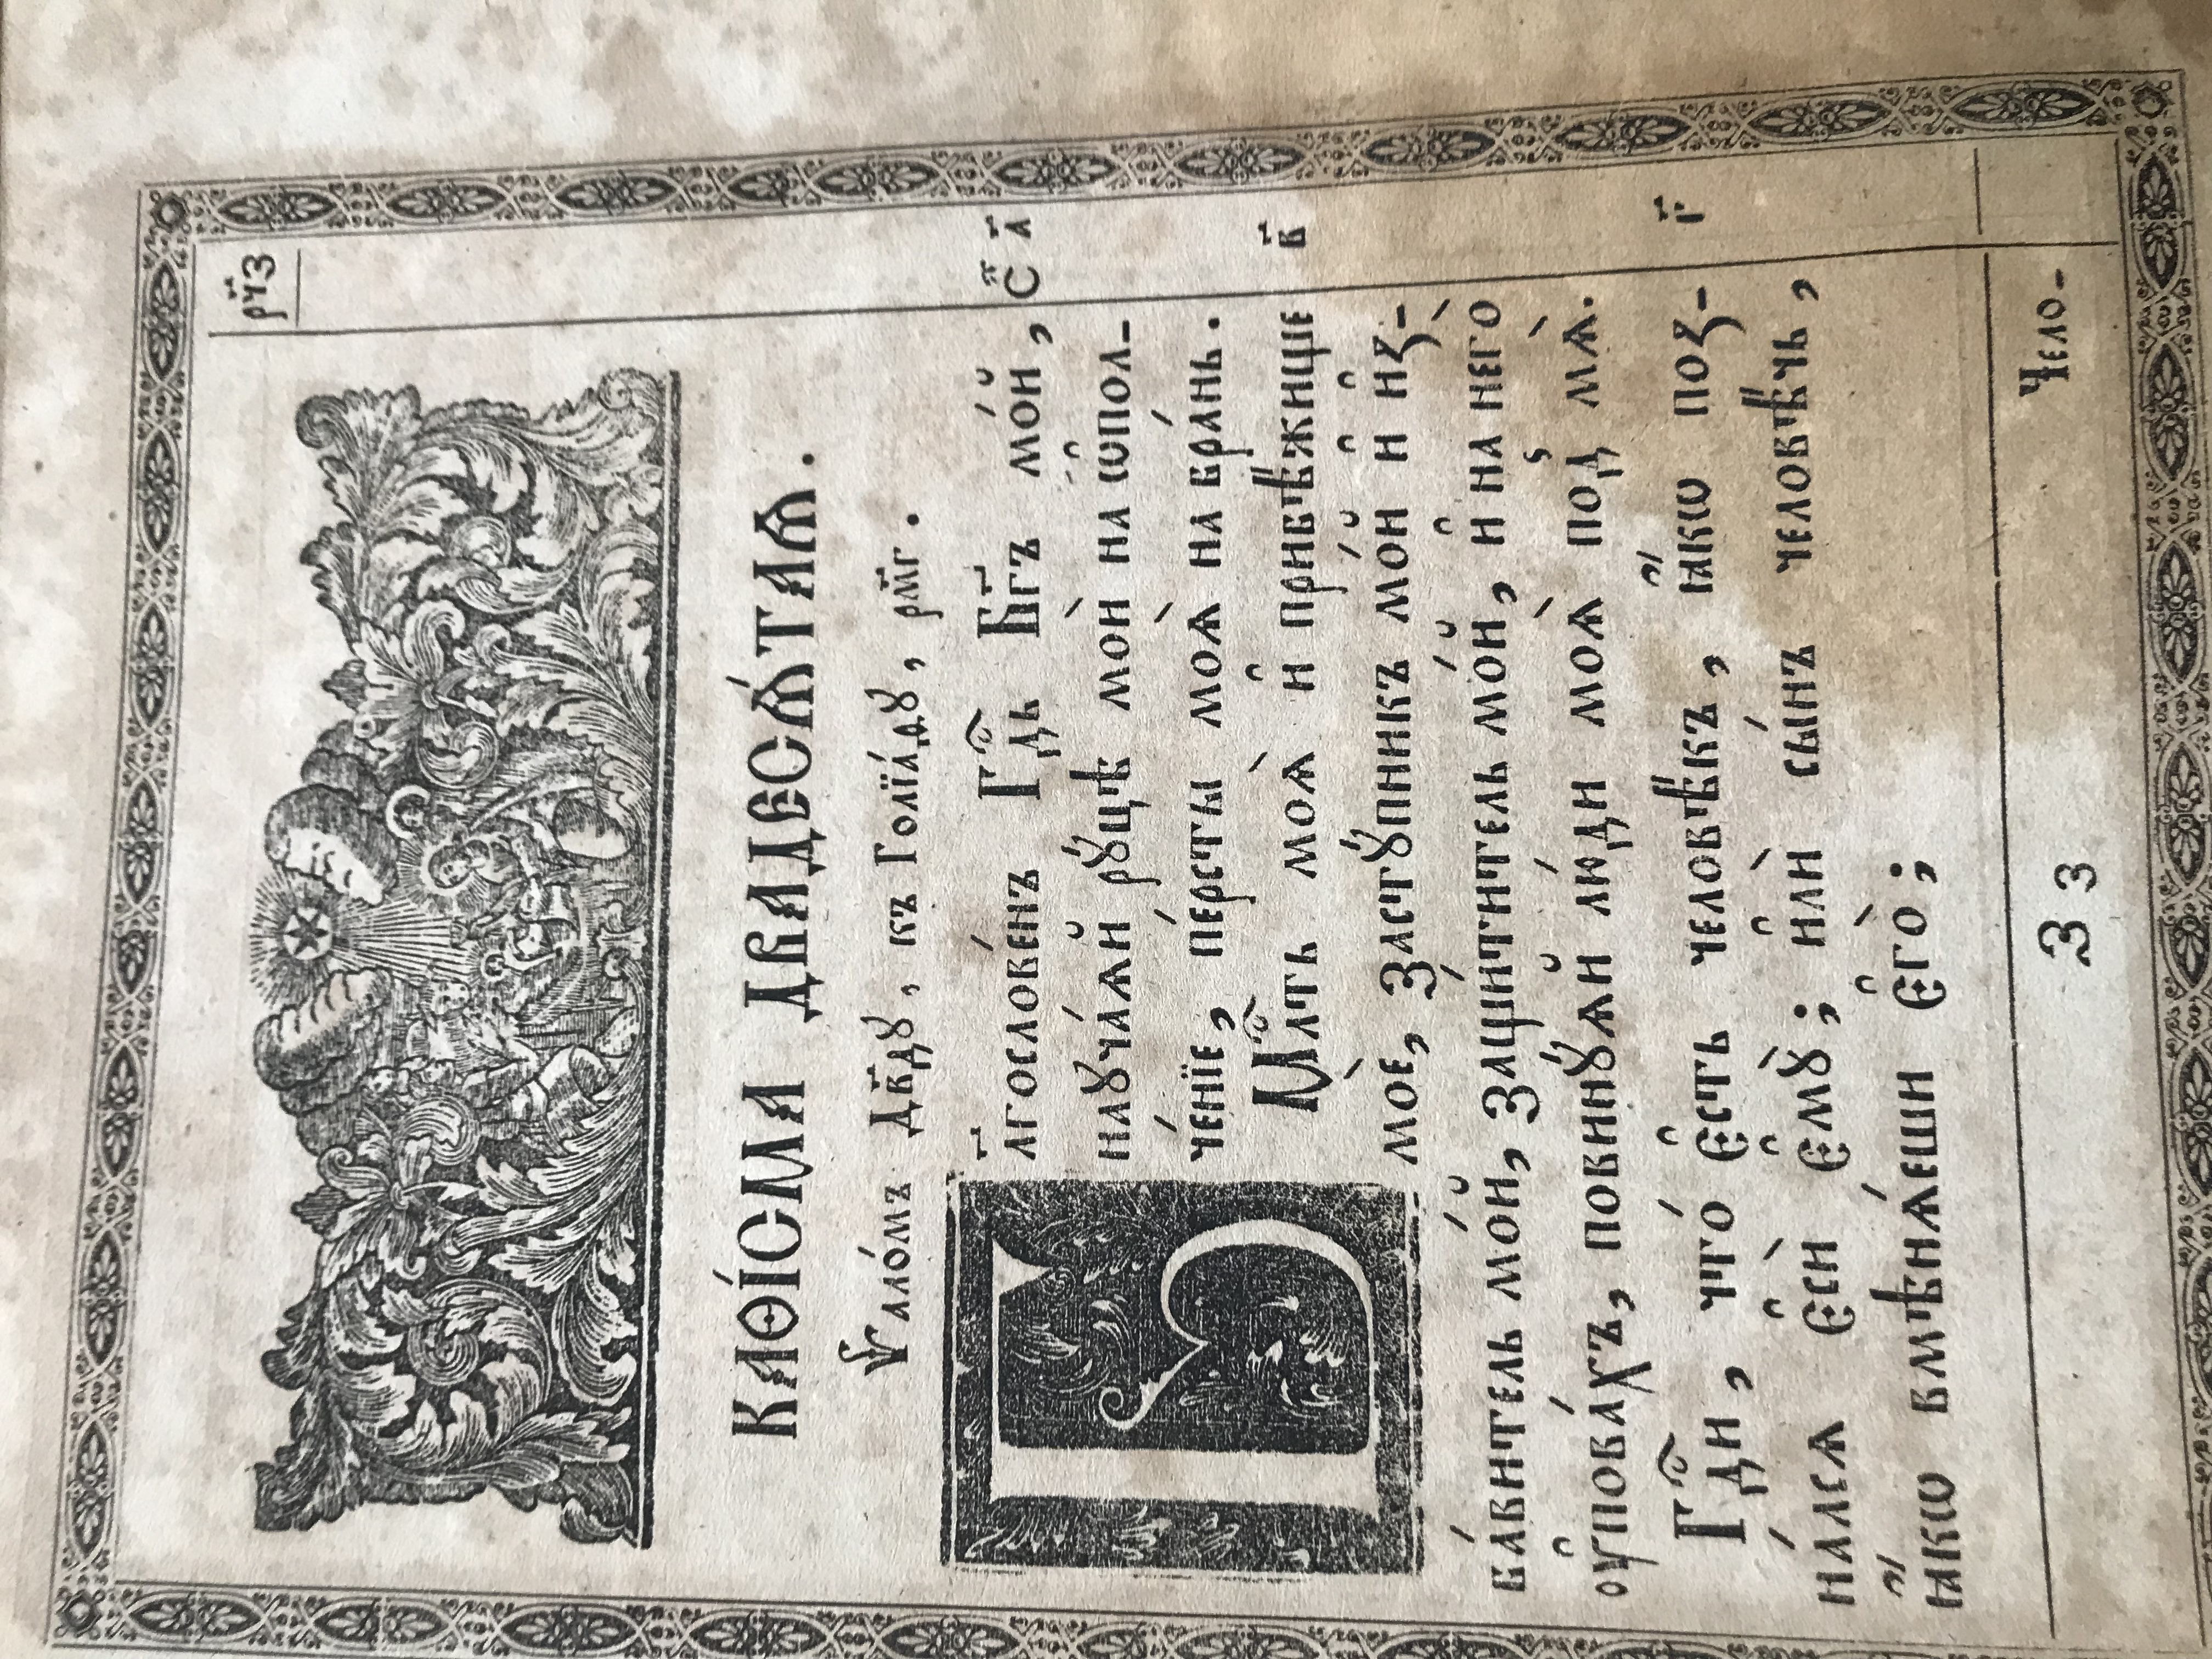 рч҃з
КАѲІ́СМА ДВАДЕСѦ́ТАѦ.
Ѱало́мъ Дв҃дꙋ, къ Голїа́дꙋ, рм҃г.
Бл҃гослове́нъ Гдⷭ҇ь Бг҃ъ мо́й, Сп҃ а҃
наꙋча́ѧй рꙋ́цѣ моѝ на ѡ҆пол-
че́нїе, пе́рсты моѧ̀ на бра́нь.
Млⷭ҇ть моѧ̀ и҆ прибѣ́жище в҃
моѐ, Застꙋ́пникъ мо́й и҆ и҆з-
ба́витель мо́й, Защи́титель мо́й, и҆ на него̀
оу҆пова́хъ, повинꙋ́ѧй лю́ди моѧ̀ под̾ мѧ̀.
Гдⷭ҇и, что́ є҆сть человѣ́къ, ꙗ҆́кѡ поз- г҃
на́лсѧ є҆сѝ є҆мꙋ̀; и҆лѝ сы́нъ человѣ́чь,
ꙗ҆́кѡ вмѣнѧ́еши є҆го̀;
З з Чело-